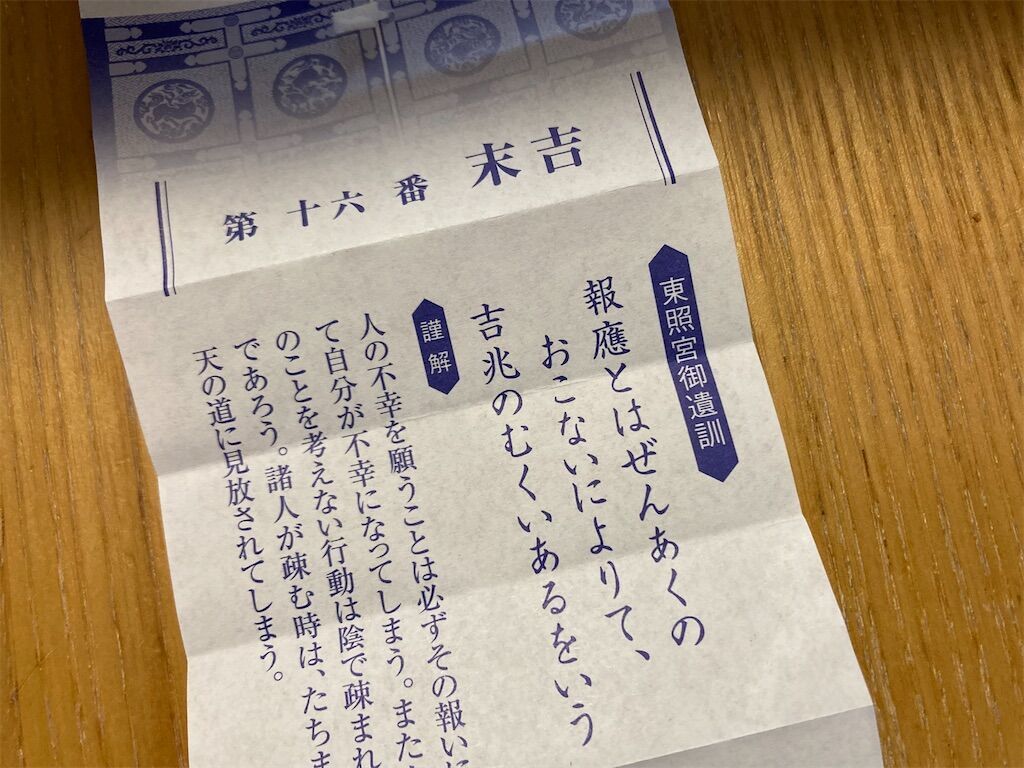 第 十六 番 末吉
東照宮御遺訓
報應とはぜんあくの
おこないによりて、
吉兆のむくいあるをいう
謹解
人の不幸を願うことは必ずその報い
て自分が不幸になってしまう。また
のことを考えない行動は陰で疎まれ
であろう。諸人が疎む時は、たちま
天の道に見放されてしまう。